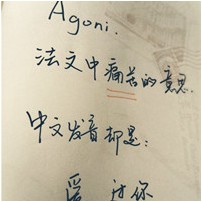 Agoni.
法文中痛苦的意思.
中文发音却是:
爱过你